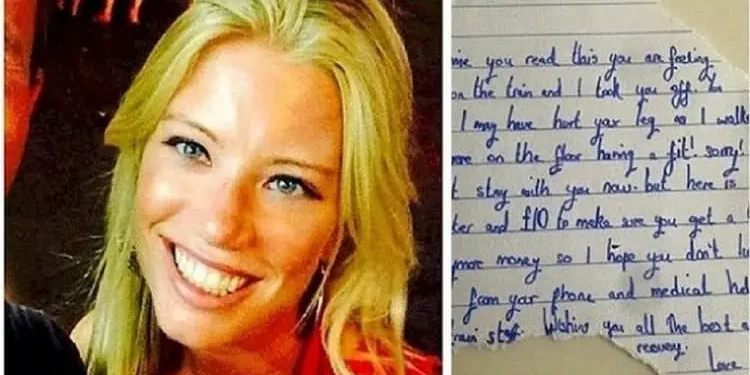 you read this you are feeling
on the train and I took you off. In
I may have hurt your leg as I walke
on the floor having a fit! sorry!
t stay with you now. but here is
ter and £10 to make sure you get a
more money so I hope you don't li
from your phone and medical
train staff. Wishing you all the best a
recovery.
Love